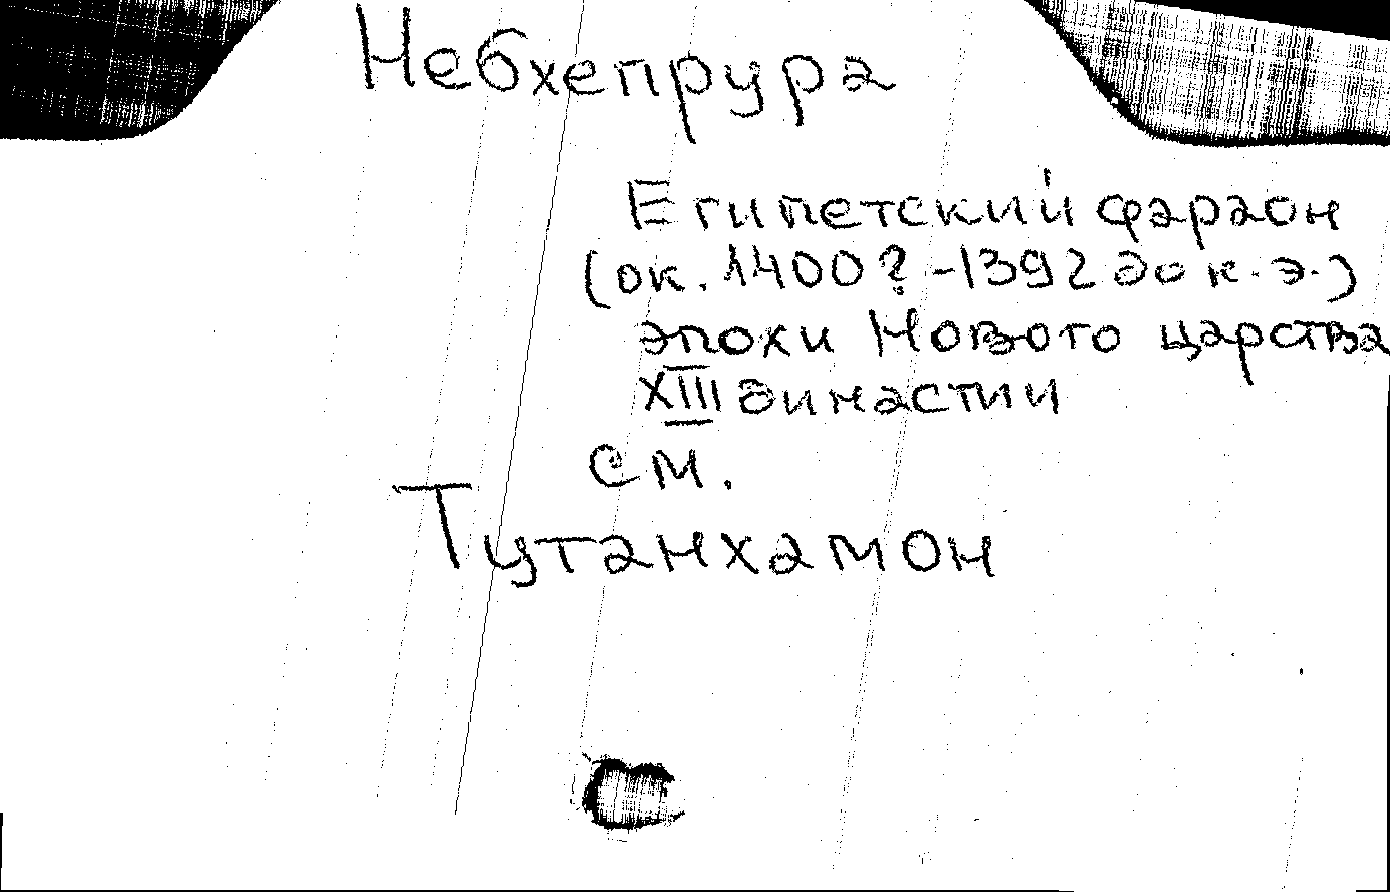 Небхепрура
Египетский фараон
(ок. 1400? - 1392 до н. э.)
эпохи Нового царства
XIII династии
см.
Тутанхамон